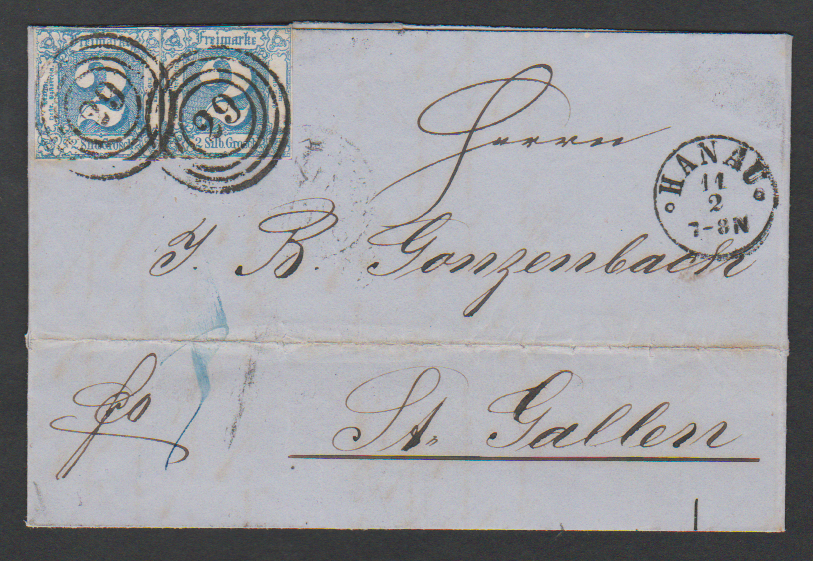 Freimarke Freimarke
2 2
2 Silb. Grosch. 2 Silb. Grosch.
Herrn
HANAU
11
2
7-8N
J. B. Gonzenbach
fco
St. Gallen